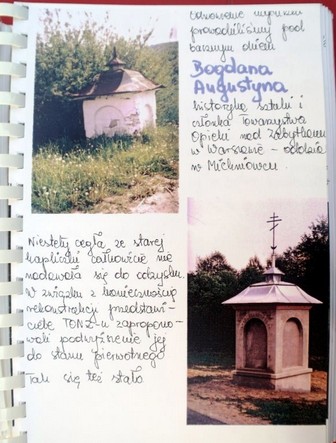 prowadziliśmy pod
bacznym okiem
Bogdana
Augustyna
historyka sztuki i
członka Towarzystwa
Opieki nad Zabytkami
w Warszawie - oddział
w Michniowcu.
Niestety cegła ze starej
kapliczki całkowicie nie
nadawała się do odzysku.
W związku z koniecznością
rekonstrukcji przedstawi-
ciele TONZ-u zapropono-
wali podwyższenie jej
do stanu pierwotnego
Tak się też stało